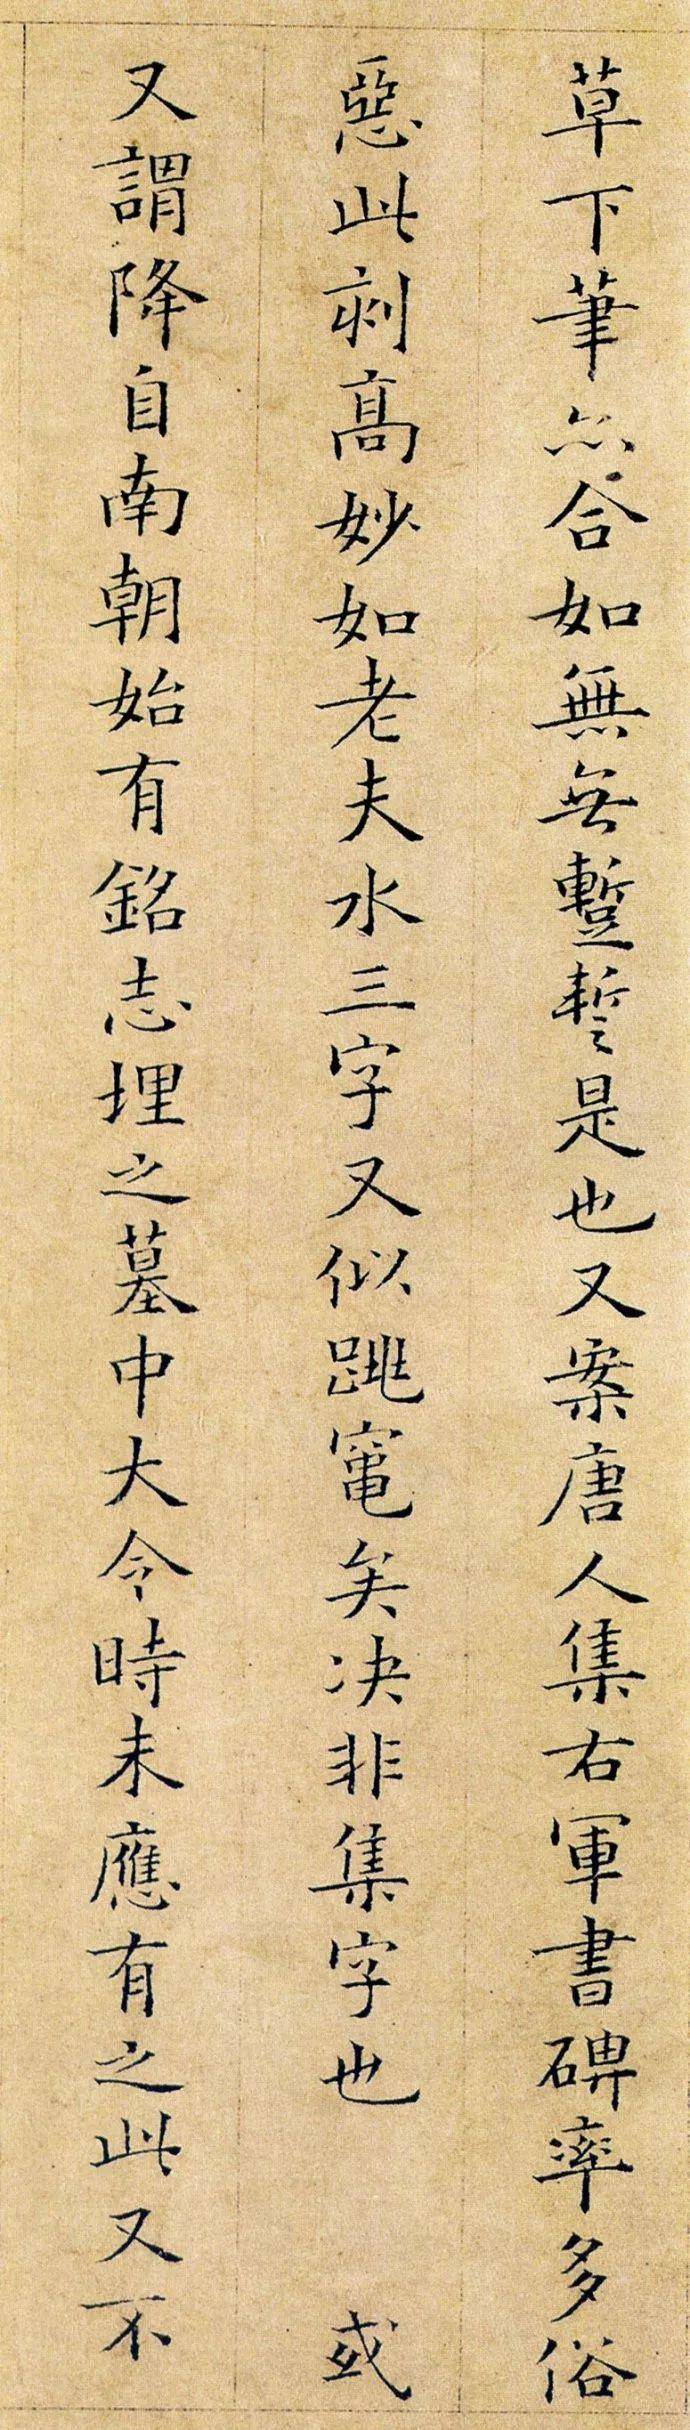 草下筆亦合如無无蹔誓是也又案唐人集右軍書碑率多俗
惡此刻高妙如老夫水三字又似跳竃矣决非集字也　或
又謂降自南朝始有銘志埋之墓中大令時未應有之此又不